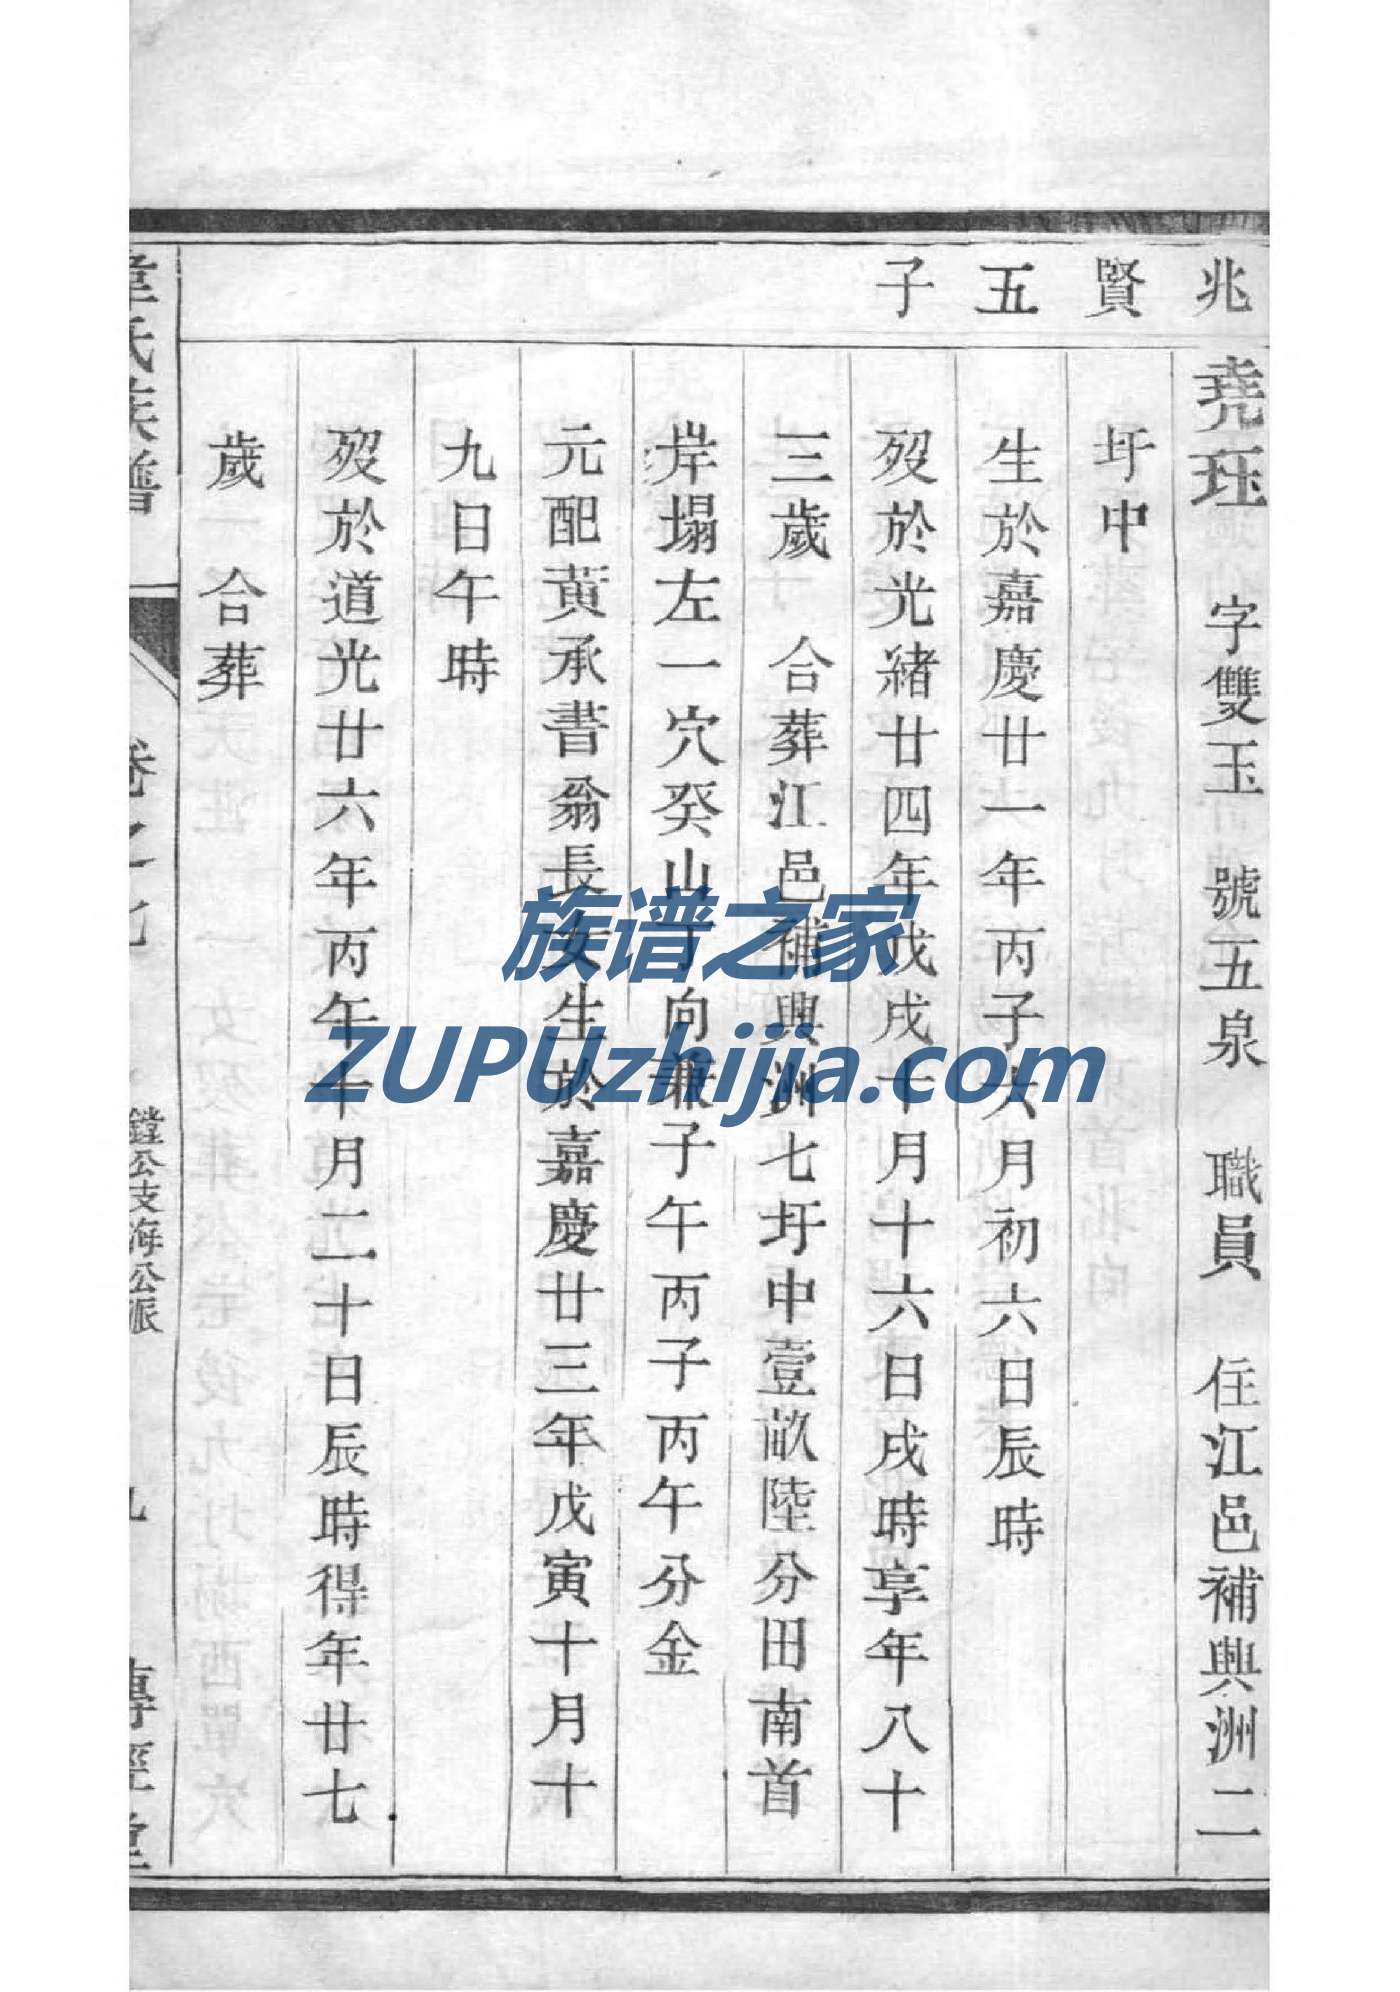 兆賢五子
堯珏 字雙玉 號五泉 職員 住江邑補興洲二
圩中
生於嘉慶廿一年丙子六月初六日辰時
歿於光緒廿四年戊戌十月十六日戌時享年八十
三歲 合葬江邑補興洲七圩中壹畝陸分田南首
岸塌左一穴癸山丁向兼子午丙子丙午分金
元配黃承書翁長女生於嘉慶廿三年戊寅十月十
九日午時
歿於道光廿六年丙午十月二十日辰時得年廿七
歲 合葬
氏族譜 卷之七 鏜公支海公派 九 傳經堂
族谱之家
ZUPUzhijia.com